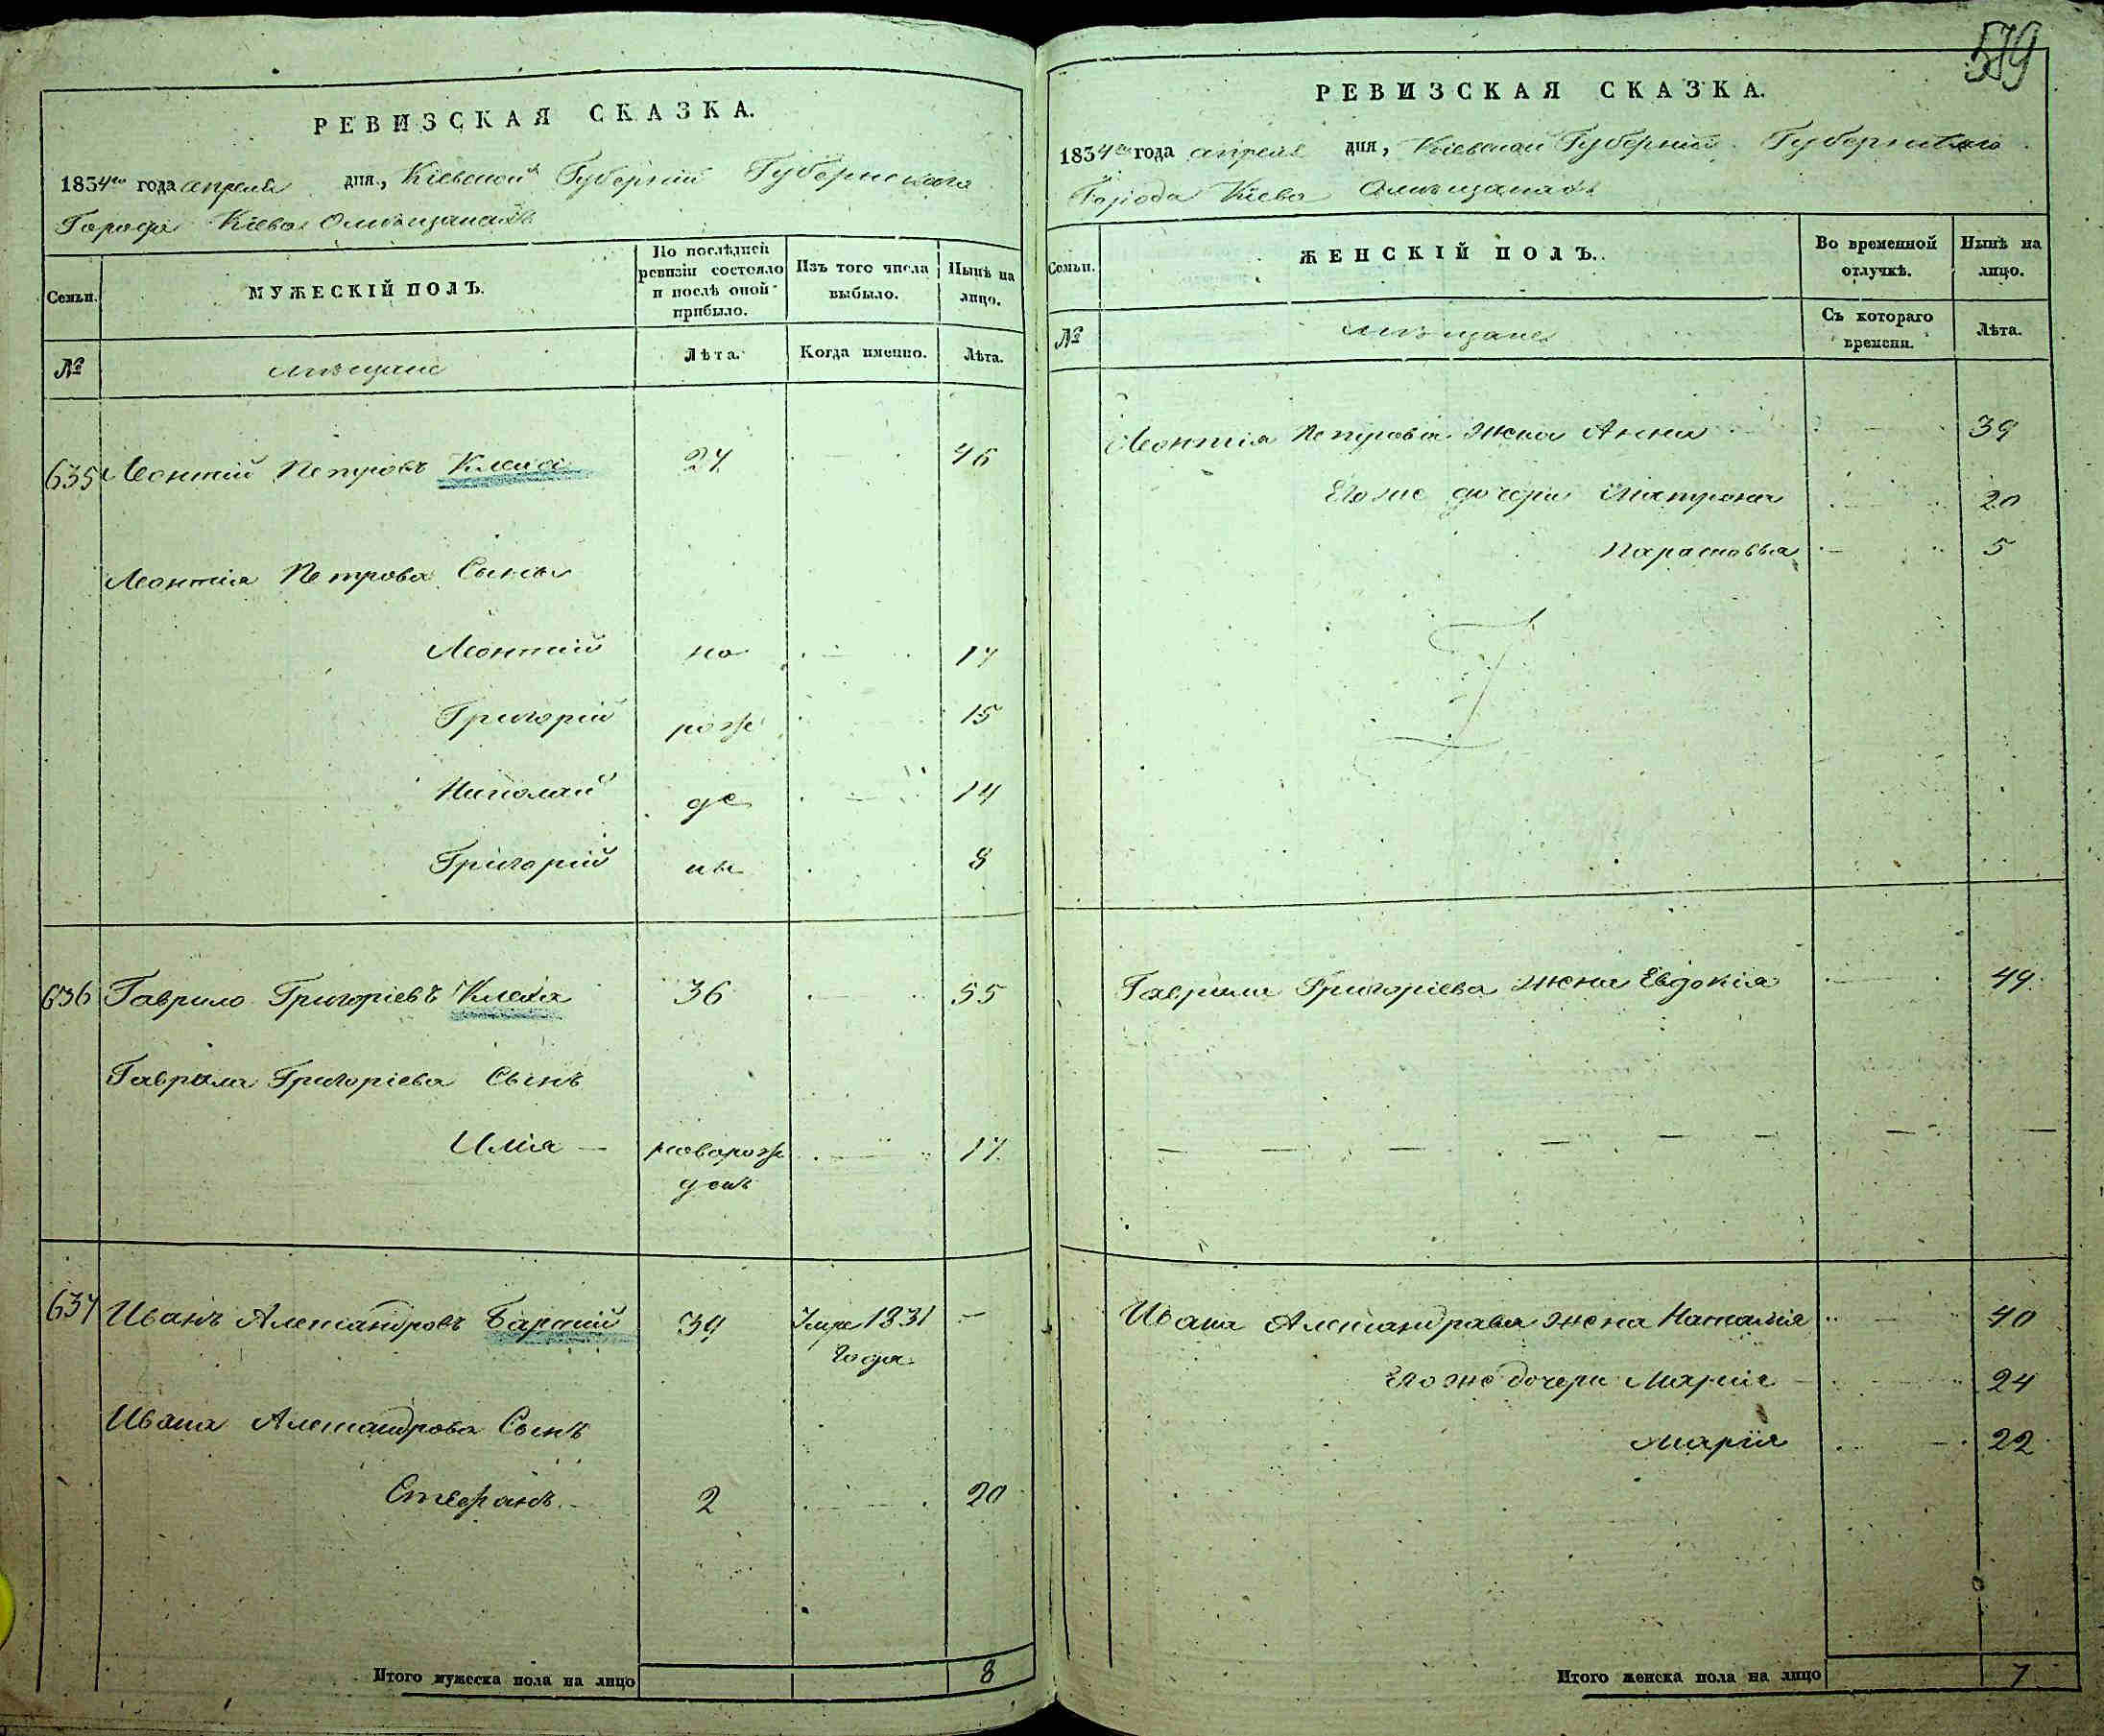 579
РЕВИЗСКАЯ СКАЗКА.
1834го года апреля дня, Кіевской Губерніи Губернскаго
Города Кіева О мѣщанахъ
Семьи.
МУЖЕСКІЙ ПОЛЪ.
По послѣдней ревизіи состояло и послѣ оной прибыло.
Изъ того числа выбыло.
Нынѣ на лицо.
№
мѣщане
Лѣта.
Когда именно.
Лѣта.
635 Леонтій Петровъ 27 46
Леонтія Петрова Сынья
Леонтій но 17
Григорій рож 15
Николай де 14
Григорій ны 8
636 Гаврило Григоріевъ 36 55
Гаврила Григоріева Сынъ
Илія — новорож 17
денъ
637 Иванъ Александровъ Барскій 39 Умре 1831 —
Года
Ивана Александрова Сынъ
Стефанъ 2 20
Итого мужеска пола на лицо 8
РЕВИЗСКАЯ СКАЗКА.
1834го года апреля дня, Кіевской Губерніи Губернскаго
Города Кіева О мѣщанахъ
Семьи.
ЖЕНСКІЙ ПОЛЪ.
Во временной отлучкѣ.
Нынѣ на лицо.
№
мѣщане
Съ котораго времени.
Лѣта.
Леонтія Петрова жена Анна 39
Его же дочери Матрона 20
Парасковья 5
Гаврила Григоріева жена Евдокія 49
Ивана Александрова жена Наталія 40
Его же дочери Марія 24
Марія 22
Итого женска пола на лицо 7